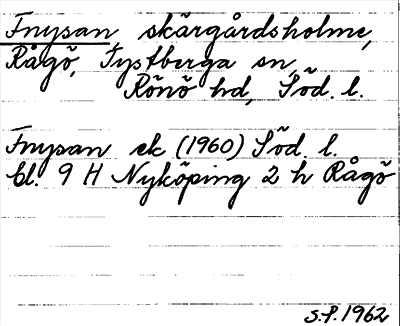 Fnysan skärgårdsholme,
Rågö, Tystberga sn,
Rönö hd, Söd. l.
Fnysan ek (1960) Söd. l.
bl. 9 H Nyköping 2 h Rågö
S.P. 1962